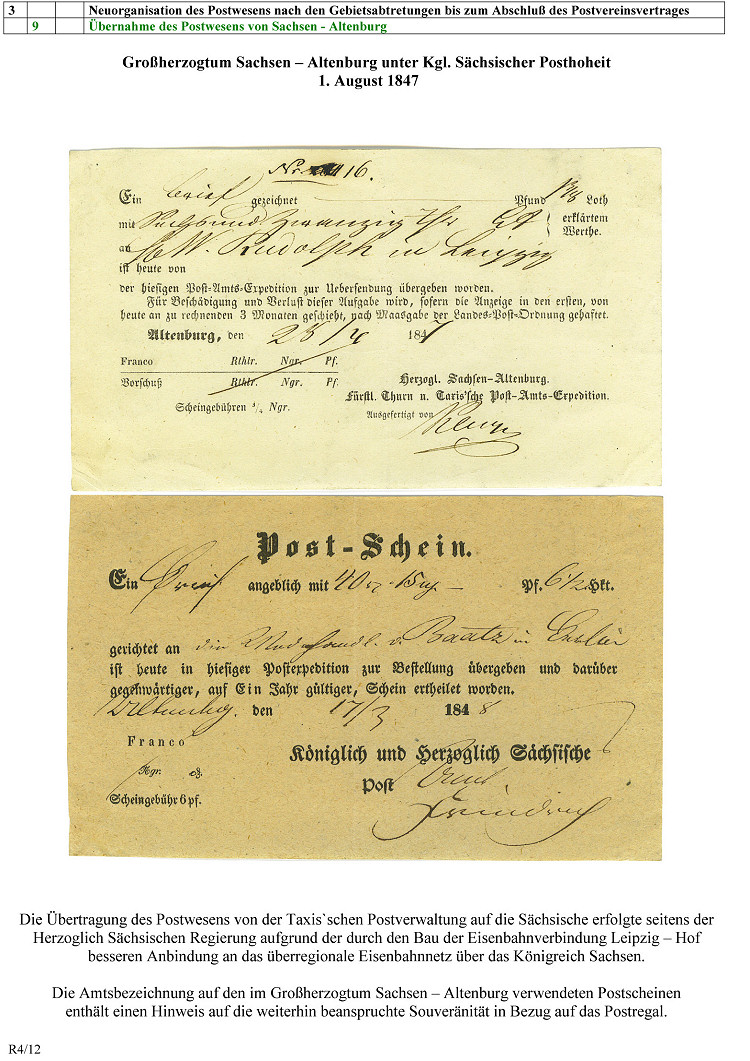 3 Neuorganisation des Postwesens nach den Gebietsabtretungen bis zum Abschluß des Postvereinsvertrages
9 Übernahme des Postwesens von Sachsen - Altenburg
Großherzogtum Sachsen – Altenburg unter Kgl. Sächsischer Posthoheit
1. August 1847
No. 416.
Ein Brief gezeichnet Pfund Loth
mit Sechsundzwanzig Thr erklärtem
Werthe.
an W. Rudolph in Leipzig
ist heute von
der hiesigen Post-Amts-Expedition zur Uebersendung übergeben worden.
Für Beschädigung und Verlust dieser Aufgabe wird, sofern die Anzeige in den ersten, von
heute an zu rechnenden 3 Monaten geschieht, nach Maasgabe der Landes-Post-Ordnung gehaftet.
Altenburg, den 1847
Franco Rthlr. Ngr. Pf.
Vorschuß Rthlr. Ngr. Pf.
Herzogl. Sachsen-Altenburg.
Fürstl. Thurn u. Taxis'sche Post-Amts-Expedition.
Scheingebühren ³/₄ Ngr.
Ausgefertigt von
Post-Schein.
Ein Brief angeblich mit 40 15 Pf. 6 1/2 Hkt.
gerichtet an v. Baatz in
ist heute in hiesiger Postexpedition zur Bestellung übergeben und darüber
gegenwärtiger, auf Ein Jahr gültiger, Schein ertheilet worden.
Altenburg. den 17/3 1848
Franco
Ngr.
Königlich und Herzoglich Sächsische
Post
Scheingebühr 6 pf.
Die Übertragung des Postwesens von der Taxis`schen Postverwaltung auf die Sächsische erfolgte seitens der
Herzoglich Sächsischen Regierung aufgrund der durch den Bau der Eisenbahnverbindung Leipzig – Hof
besseren Anbindung an das überregionale Eisenbahnnetz über das Königreich Sachsen.
Die Amtsbezeichnung auf den im Großherzogtum Sachsen – Altenburg verwendeten Postscheinen
enthält einen Hinweis auf die weiterhin beanspruchte Souveränität in Bezug auf das Postregal.
R4/12